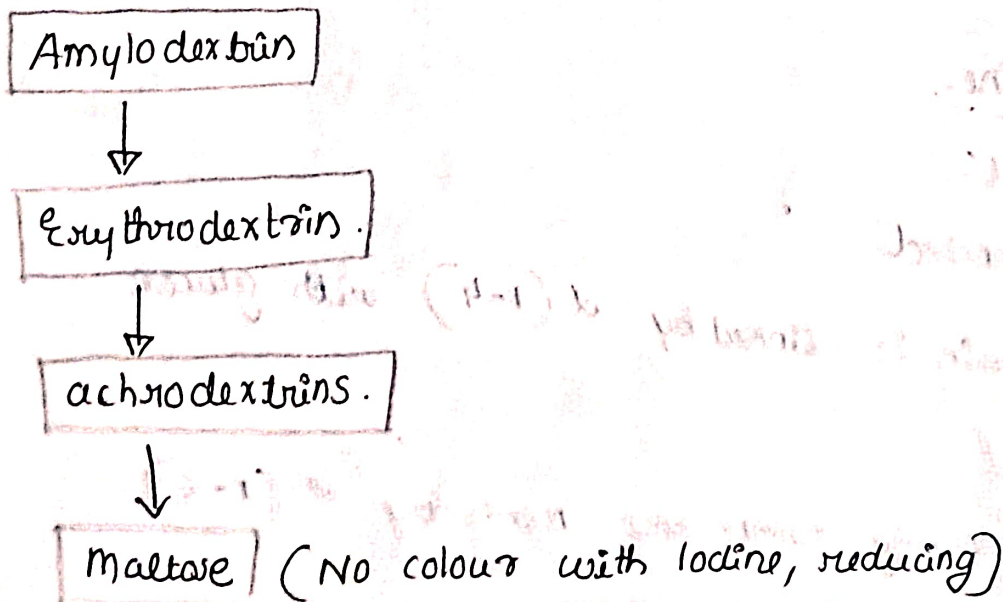 Amylodextrin
Erythrodextrin.
achrodextrins.
Maltose (No colour with Iodine, reducing)